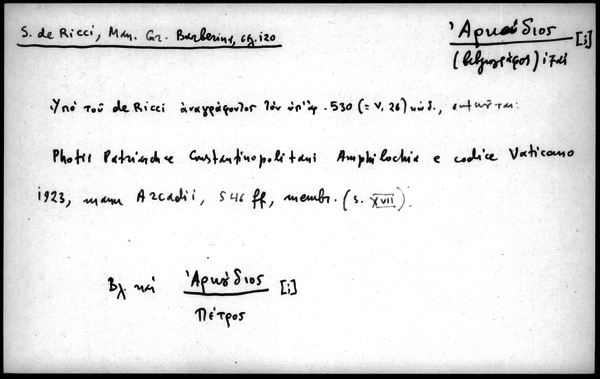 S. de Ricci, Man. Gr. Barberina, σελ. 120
Ἀρκάδιος [i]
(βιβλιογράφος)
Ὑπό τοῦ de Ricci ἀναγράφοντος τόν ὑπ' ἀρ. 530 (= V, 26) κώδ.,
Photii Patriarchae Constantinopolitani Amphilochia e codice Vaticano
1923, manu Arcadii, 546 ff, membr. (s. XVII).
Βλ καί Ἀρκάδιος [i]
Πέτρος